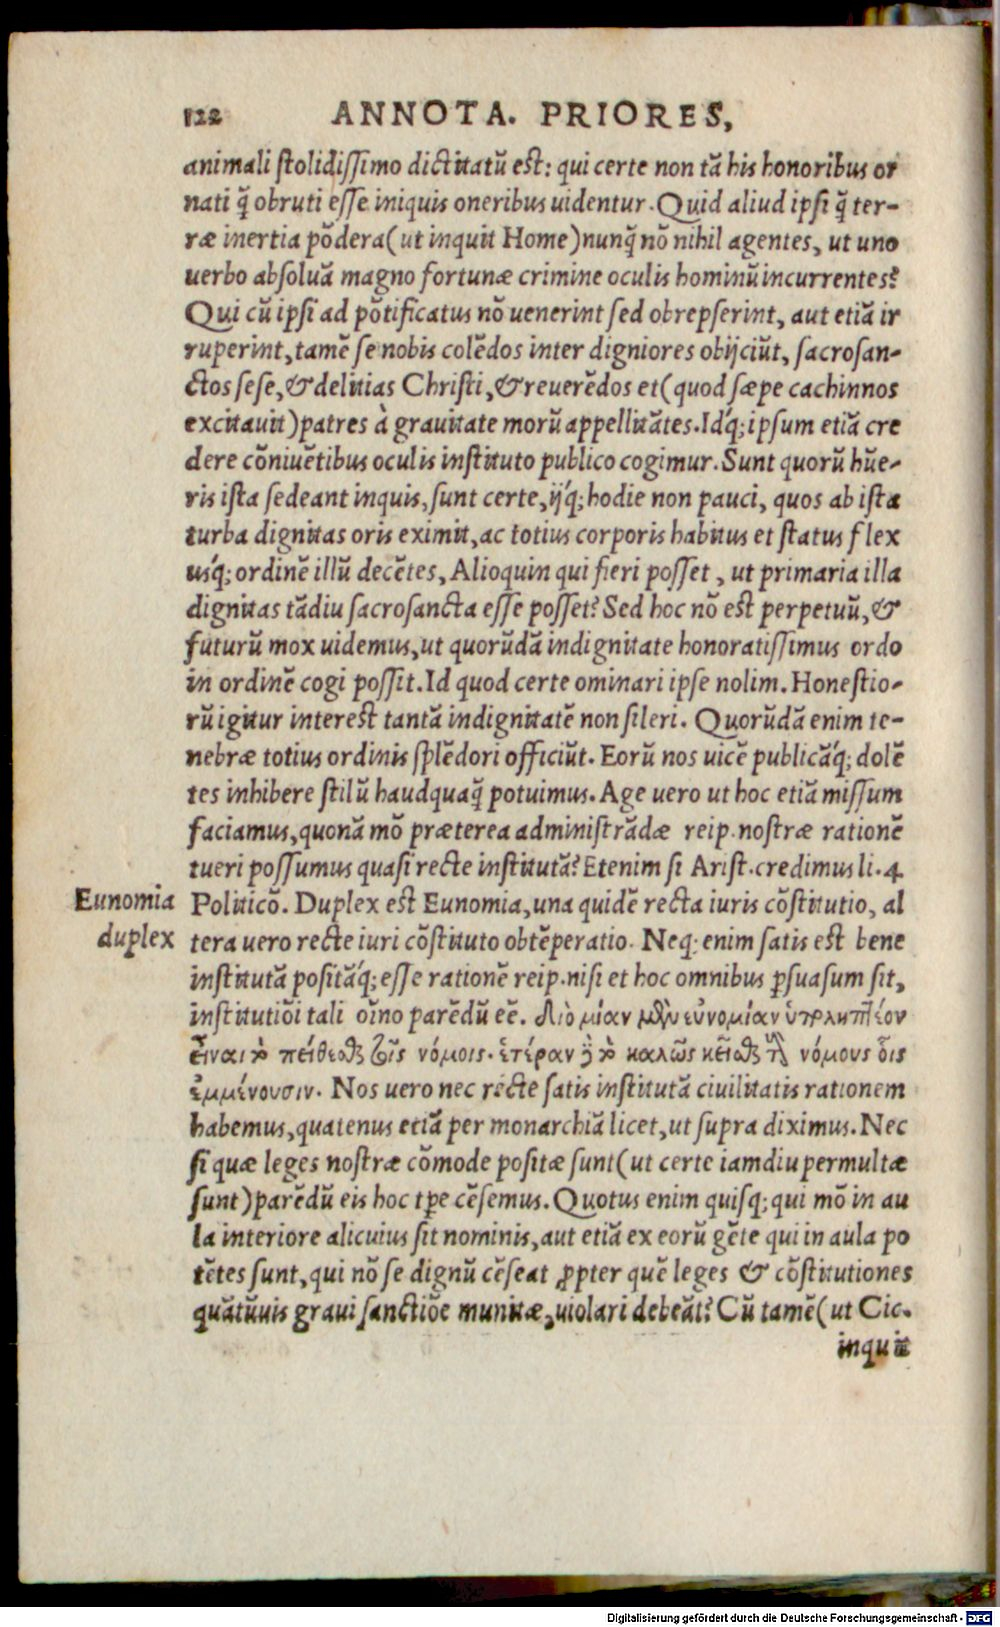 122 ANNOTA. PRIORES,
animali stolidissimo dictitatū est: qui certe non tā his honoribus or
nati q̄ obruti esse iniquis oneribus uidentur. Quid aliud ipsi q̄ ter-
ræ inertia pōdera (ut inquit Home) nunq̄ nō nihil agentes, ut uno
uerbo absoluā magno fortunæ crimine oculis hominū incurrentes?
Qui cū ipsi ad pōtificatus nō uenerint sed obrepserint, aut etiā ir
ruperint, tamē se nobis colēdos inter digniores obijciūt, sacrosan-
ctos sese, & delitias Christi, & reuerēdos et (quod sæpe cachinnos
excitauit) patres à grauitate morū appellitātes. Idq́; ipsum etiā cre
dere cōniuētibus oculis instituto publico cogimur. Sunt quorū hūe-
ris ista sedeant inquis, sunt certe, ijq́; hodie non pauci, quos ab ista
turba dignitas oris eximit, ac totius corporis habitus et status flex
usq́; ordinē illū decētes, Alioquin qui fieri posset, ut primaria illa
dignitas tādiu sacrosancta esse posset? Sed hoc nō est perpetuū, &
futurū mox uidemus, ut quorūdā indignitate honoratissimus ordo
in ordinē cogi possit. Id quod certe ominari ipse nolim. Honestio-
rū igitur interest tantā indignitatē non sileri. Quorūdā enim te-
nebræ totius ordinis splēdori officiūt. Eorū nos uicē publicāq́; dolē
tes inhibere stilū haudquaq̄ potuimus. Age uero ut hoc etiā missum
faciamus, quonā mō præterea administrādæ reip. nostræ rationē
tueri possumus quasi recte institutā? Etenim si Arist. credimus li. 4
Eunomia duplex
Politicō. Duplex est Eunomia, una quidē recta iuris cōstitutio, al
tera uero recte iuri cōstituto obtēperatio. Neq; enim satis est bene
institutā positāq́; esse rationē reip. nisi et hoc omnibus ꝑsuasum sit,
institutiōi tali oīno parēdū eē. Διὸ μίαν μὲν εὐνομίαν ὑποληπτέον
εἶναι τὸ πείθεσθαι τοῖς νόμοις. ἑτέραν δὲ τὸ καλῶς κεῖσθαι τοὺς νόμους οἷς
ἐμμένουσιν. Nos uero nec recte satis institutā ciuilitatis rationem
habemus, quatenus etiā per monarchiā licet, ut supra diximus. Nec
si quæ leges nostræ cōmode positæ sunt (ut certe iamdiu permultæ
sunt) parēdū eis hoc tꝑe cēsemus. Quotus enim quisq; qui mō in au
la interiore alicuius sit nominis, aut etiā ex eorū gēte qui in aula po
tētes sunt, qui nō se dignū cēseat ꝓpter quē leges & cōstitutiones
quātūuis graui sanctiōe munitæ, uiolari debeāt? Cū tamē (ut Cic.
inquit
Digitalisierung gefördert durch die Deutsche Forschungsgemeinschaft - DFG